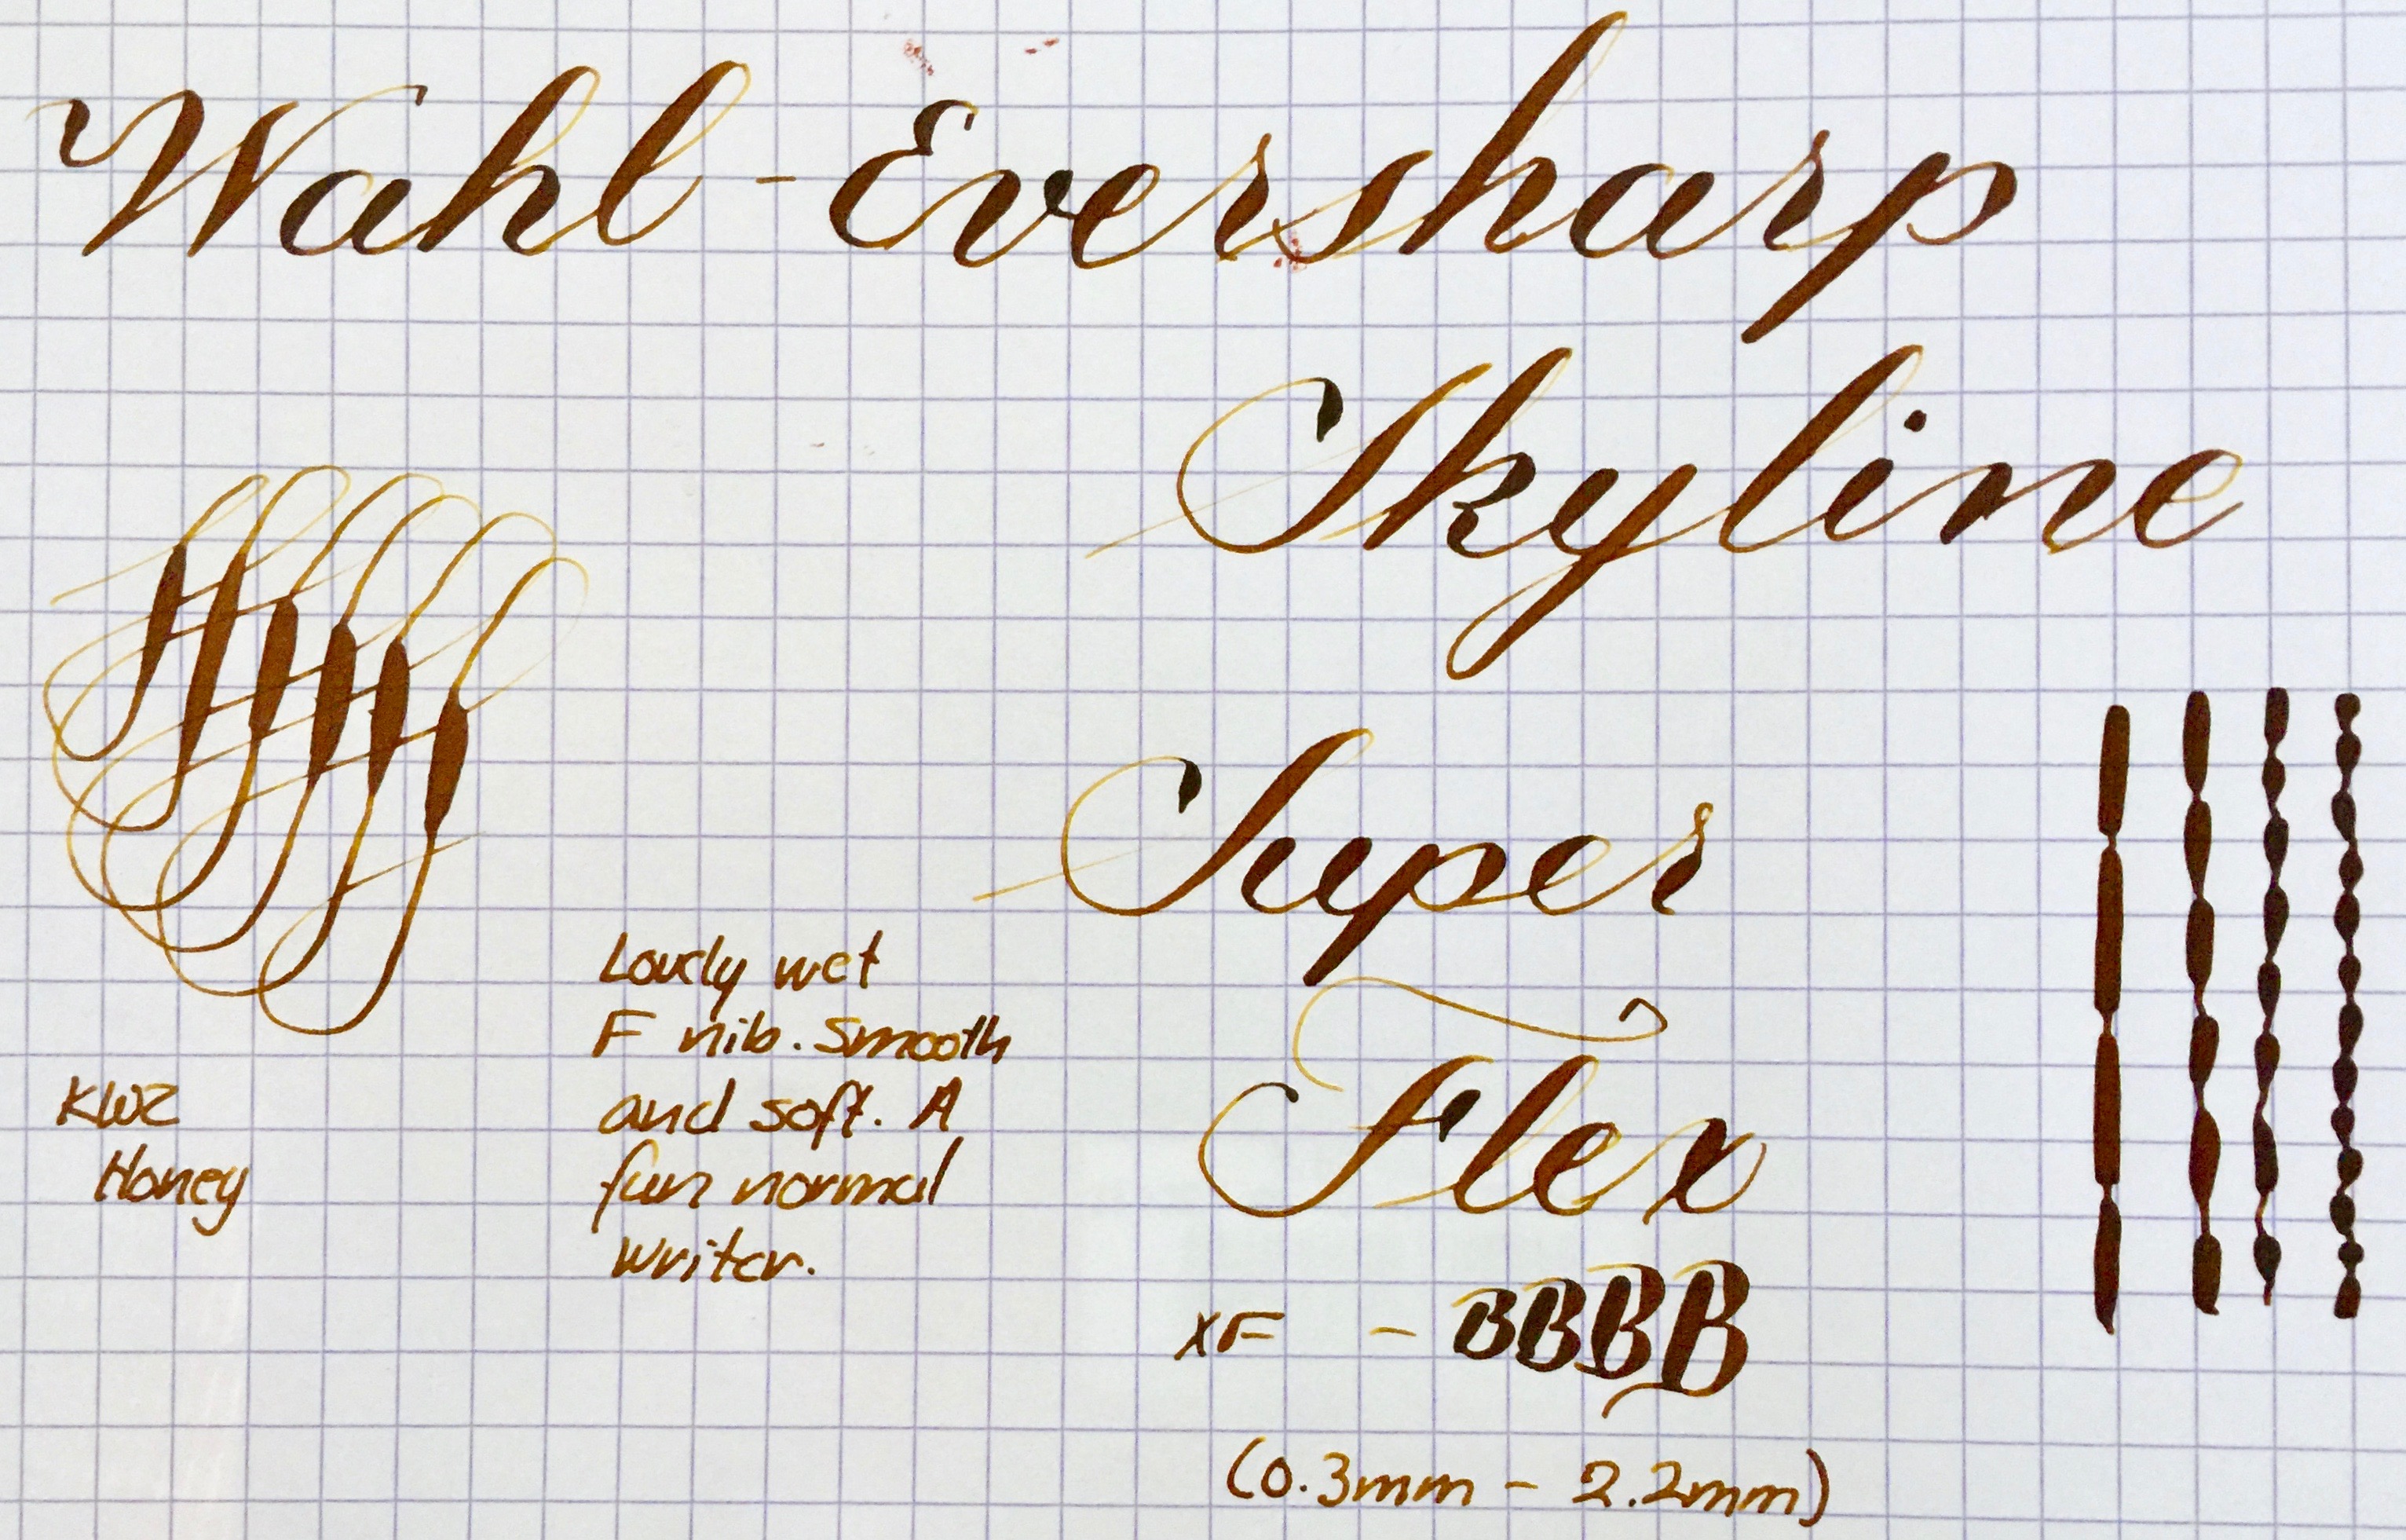 Wahl-Eversharp
Skyline
Super
Flex
XF - BBBB
(0.3mm - 2.2mm)
Lovely wet
F nib. Smooth
and soft. A
fun normal
writer.
KWZ
Honey